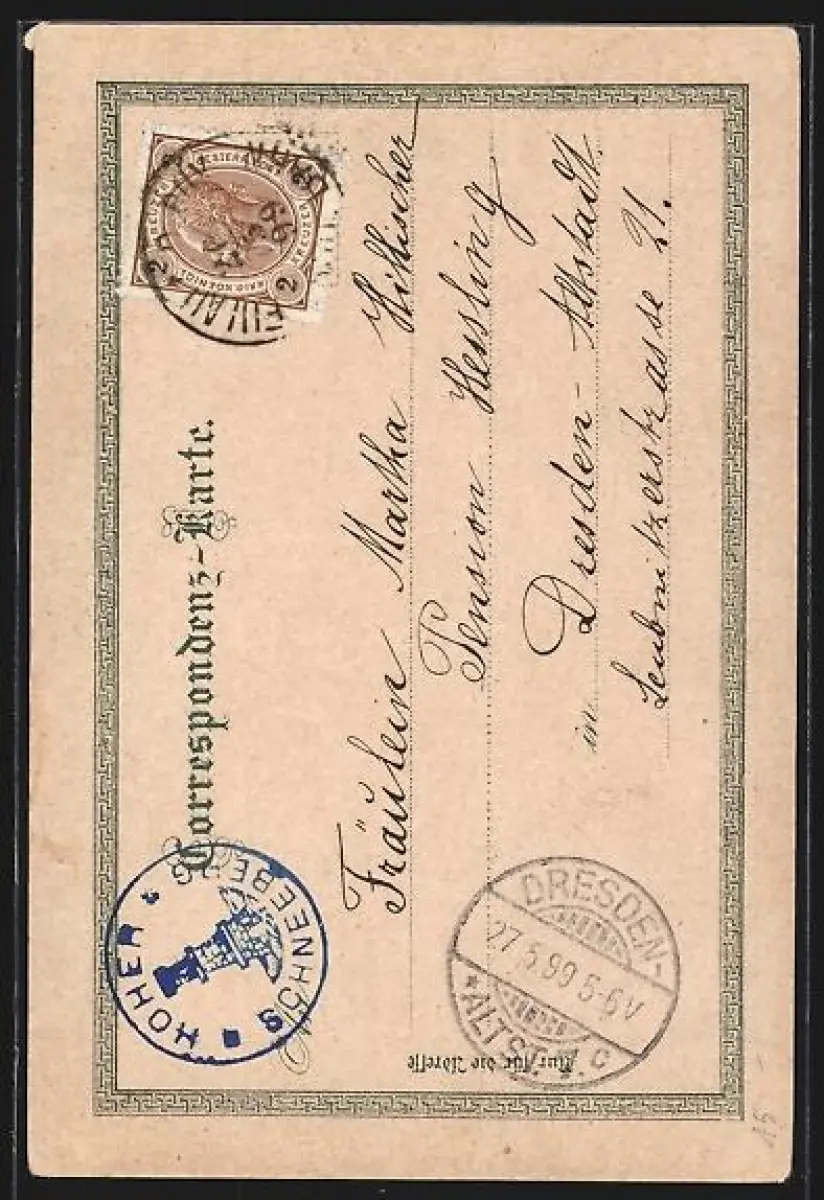 Correspondenz-Karte.
Fräulein Martha Hillischer
Pension Hessling
in Dresden-Altstadt.
Leubnitzerstrasse 21.
Nur für die Adresse
2 KREUZER
2
EULAU
HOHER SCHNEEBERG
DRESDEN-
27.5.99 5-6V
*ALTST. C
15